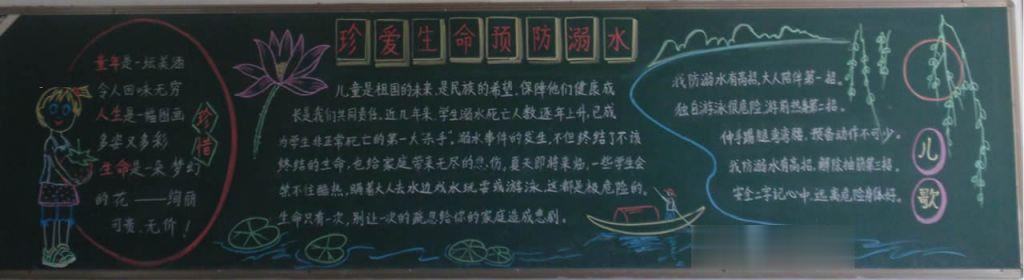 珍爱生命预防溺水
童年是一坛美酒
令人回味无穷
人生是一幅图画
多姿又多彩
生命是一朵梦幻
的花——绚丽
可贵、无价！
珍惜
儿童是祖国的未来,是民族的希望,保障他们健康成
长是我们共同责任。近几年来,学生溺水死亡人数逐年上升,已成
为学生非正常死亡的第一大杀手”。溺水事件的发生,不但终结了不该
终结的生命,也给家庭带来无尽的悲伤,夏天即将来临,一些学生会
禁不住酷热,瞒着大人去水边戏水玩耍或游泳,这都是极危险的。
生命只有一次,别让一次的疏忽给你的家庭造成悲剧。
我防溺水有高招,大人陪伴第一招。
独自游泳很危险,游前热身第二招。
伸手踢腿弯弯腰,预备动作不可少。
我防溺水有高招,解除抽筋第三招。
安全二字记心中,远离危险身体好。
儿歌